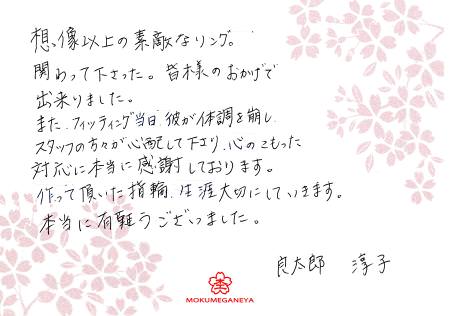 想像以上の素敵なリング。
関わって下さった。皆様のおかげで
出来りました。
また、フィッティング当日、彼が体調を崩し
スタッフの方々が心配して下さり、心のこもった
対応に本当に感謝しております。
作って頂いた指輪、生涯大切にしていきます。
本当に有難うございました。
良太郎 淳子
MOKUMEGANEYA